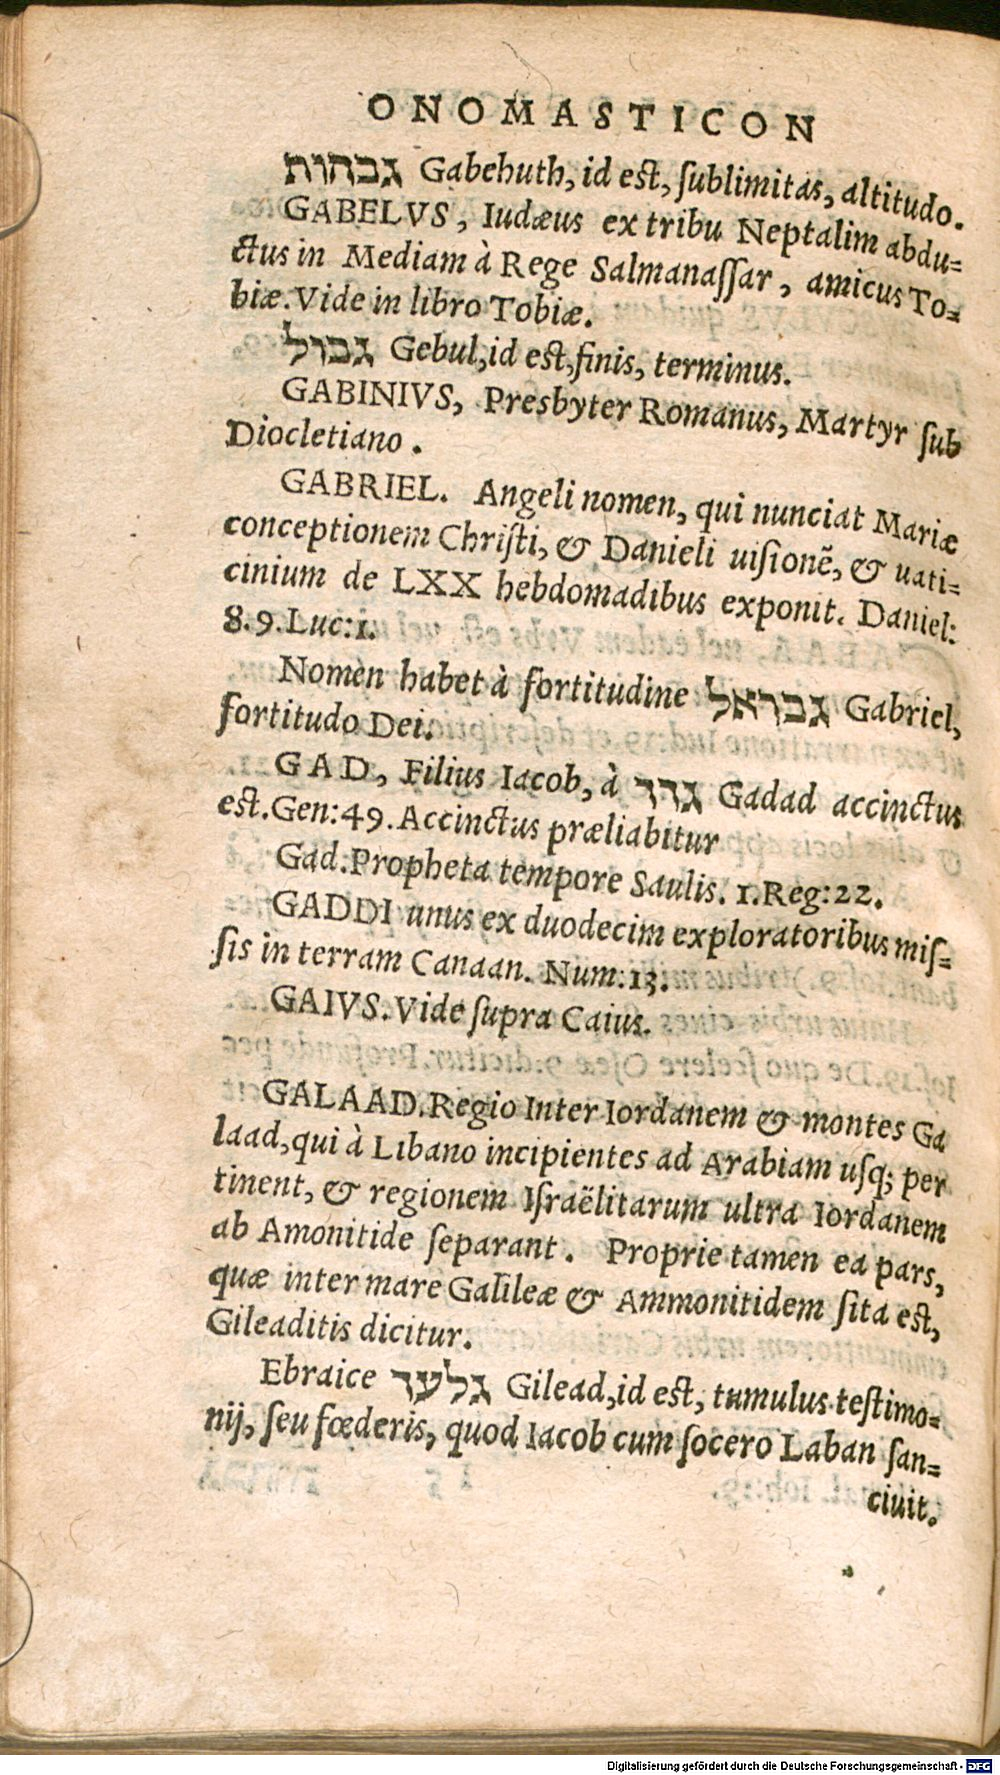 ONOMASTICON
גבהות Gabehuth, id est, ſublimitas, altitudo.
GABELVS, Iudæus ex tribu Neptalim abdu=
ctus in Mediam à Rege Salmanaſſar, amicus To=
biæ. Vide in libro Tobiæ.
גבול Gebul, id est, finis, terminus.
GABINIVS, Presbyter Romanus, Martyr ſub
Diocletiano.
GABRIEL. Angeli nomen, qui nunciat Mariæ
conceptionem Chriſti, & Danieli uiſionẽ, & uati=
cinium de LXX hebdomadibus exponit. Daniel:
8.9. Luc:1.
Nomen habet à fortitudine גבראל Gabriel,
fortitudo Dei.
GAD, Filius Iacob, à גדד Gadad accinctus
est. Gen:49. Accinctus præliabitur
Gad. Propheta tempore Saulis. 1.Reg:22.
GADDI unus ex duodecim exploratoribus miſ=
ſis in terram Canaan. Num:13.
GAIVS. Vide ſupra Caius.
GALAAD. Regio Inter Iordanem & montes Ga
laad, qui à Libano incipientes ad Arabiam uſq; per
tinent, & regionem Iſraëlitarum ultra Iordanem
ab Amonitide ſeparant. Proprie tamen ea pars,
quæ inter mare Galileæ & Ammonitidem ſita est,
Gileaditis dicitur.
Ebraice גלעד Gilead, id est, tumulus teſtimo=
nij, ſeu fœderis, quod Iacob cum ſocero Laban ſan=
ciuit.
Digitalisierung gefördert durch die Deutsche Forschungsgemeinschaft - DFG